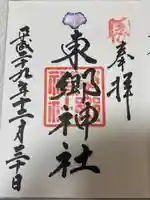 奉拝
東郷神社
平成二十九年十二月三十日